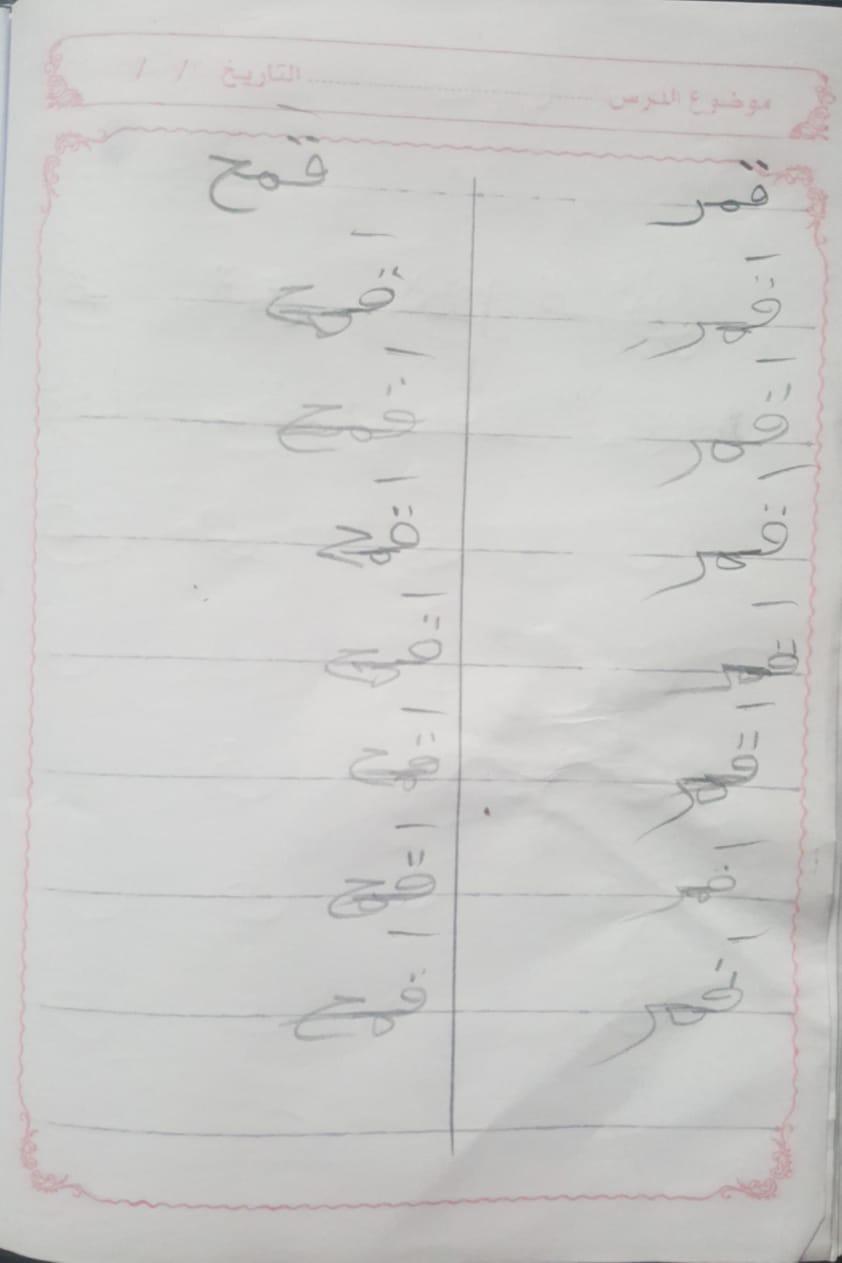 موضوع الدرس .................... التاريخ / /
قمر قَمح
قَمر قَمح
قَمر قَمح
قَمر قَمح
قَمر قَمح
قَمر قَمح
قَمر قَمح
قَمر قَمح